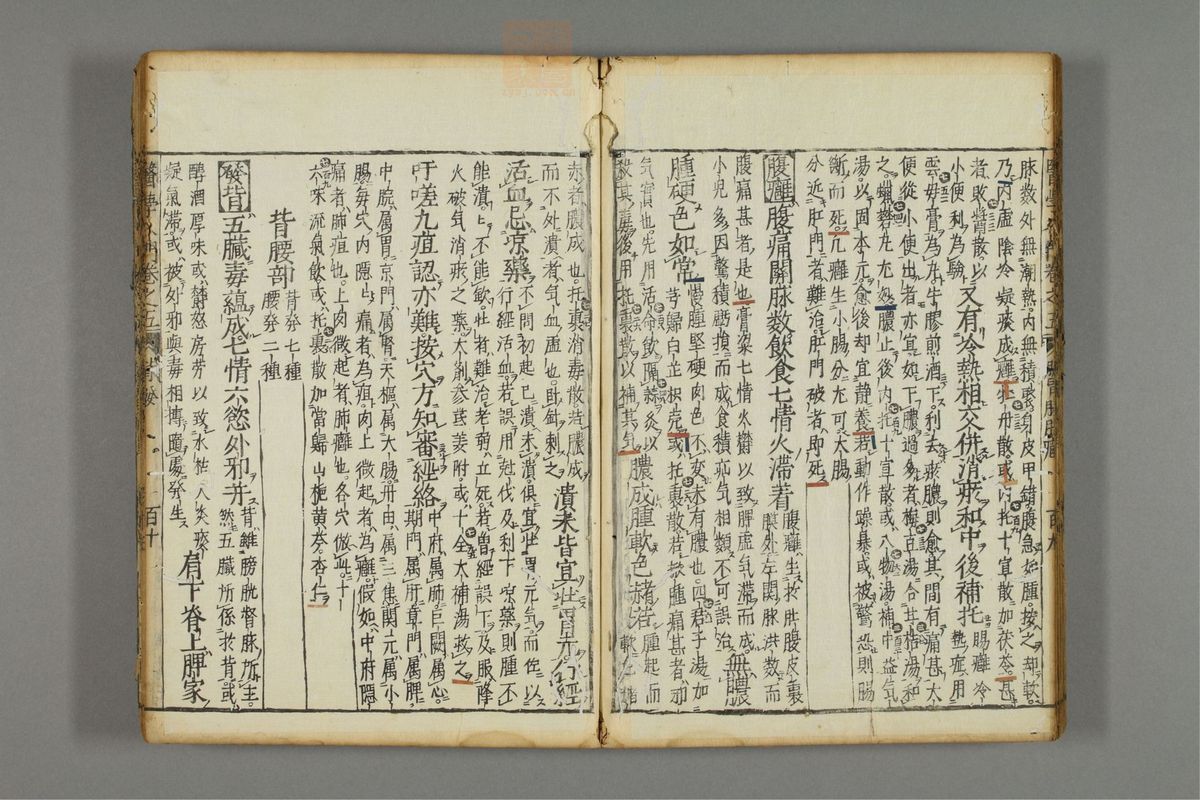 脉数外無潮熱内無積聚身皮甲錯腹急如腫按之却軟
乃内虚陰冷凝痰成癰牡丹散或内托十宣散加茯苓甚
者敗醬散以
小便利為驗
又有冷熱相交併消瘀和中後補托
腸癰冷
熱症用
雲母膏為丸牛膠煎酒下利去瘀膿則愈其間有痛甚大
便從小便出者亦宜如下膿過多者梅古湯合桔湯和
之蠟礬丸尤妙膿止後内托十宣散或八物湯補中益气
湯以固本元愈後却宜靜養若動作躁暴或被驚恐則腸
斷而死凡癰生小腸分尤可大腸
分近肛門者難治肛門破者即死
腹癰
腹痛關脉数飲食七情火滞着
腹癰生於肚腹皮裏
膜外左関脉洪数而
腹痛甚者是也膏粱七情火欝以致脾虚气滞而成
小児多因驚積所損而成食積疝气相類不可誤治
無膿
腫硬色如常
漫腫堅硬肉色不変未有膿也四君子湯加
芎歸白芷枳壳或托裏散若欣腫痛甚者邪
气實也先用活命飲隔蒜灸以
殺其毒後用托裏散以補其气
膿成腫軟色赭活
腫起而
軟色赭
赤者膿成也托裏消毒散若膿成
而不外潰者气血虚也卧針刺之
潰未皆宜壮胃先行經
活血忌凉藥
不問初起已潰未潰俱宜壮胃元气而佐以
行經活血若誤用尅伐及利下凉藥則腫不
能潰々不能歛壮者難治老弱立死若曽經誤下及服降
火破气消瘀之藥大剤参芪姜附或十全大補湯救之
吁嗟九疽認亦難按穴方知審經絡
中府属肺巨闕属心
期門属肝章門属脾
中脘属胃京門属腎天樞属大腸丹田属三焦関元属小
腸毎穴内隠々痛者為疽肉上微起者為癰假如中府隠
痛者肺疽也上肉微起者肺癰也各穴倣此十
六味流気飲或托裏散加當歸山梔黄芩杏仁
背腰部
背発七種
腰発二種
發背
五臓毒藴成七情六慾外邪并
背雖膀胱督脉所主
然五臓所係於背或
醇酒厚味或欝怒房労以致水枯火炎痰
凝气滞或被外邪與毒相搏随處発生
有下脊上脾家